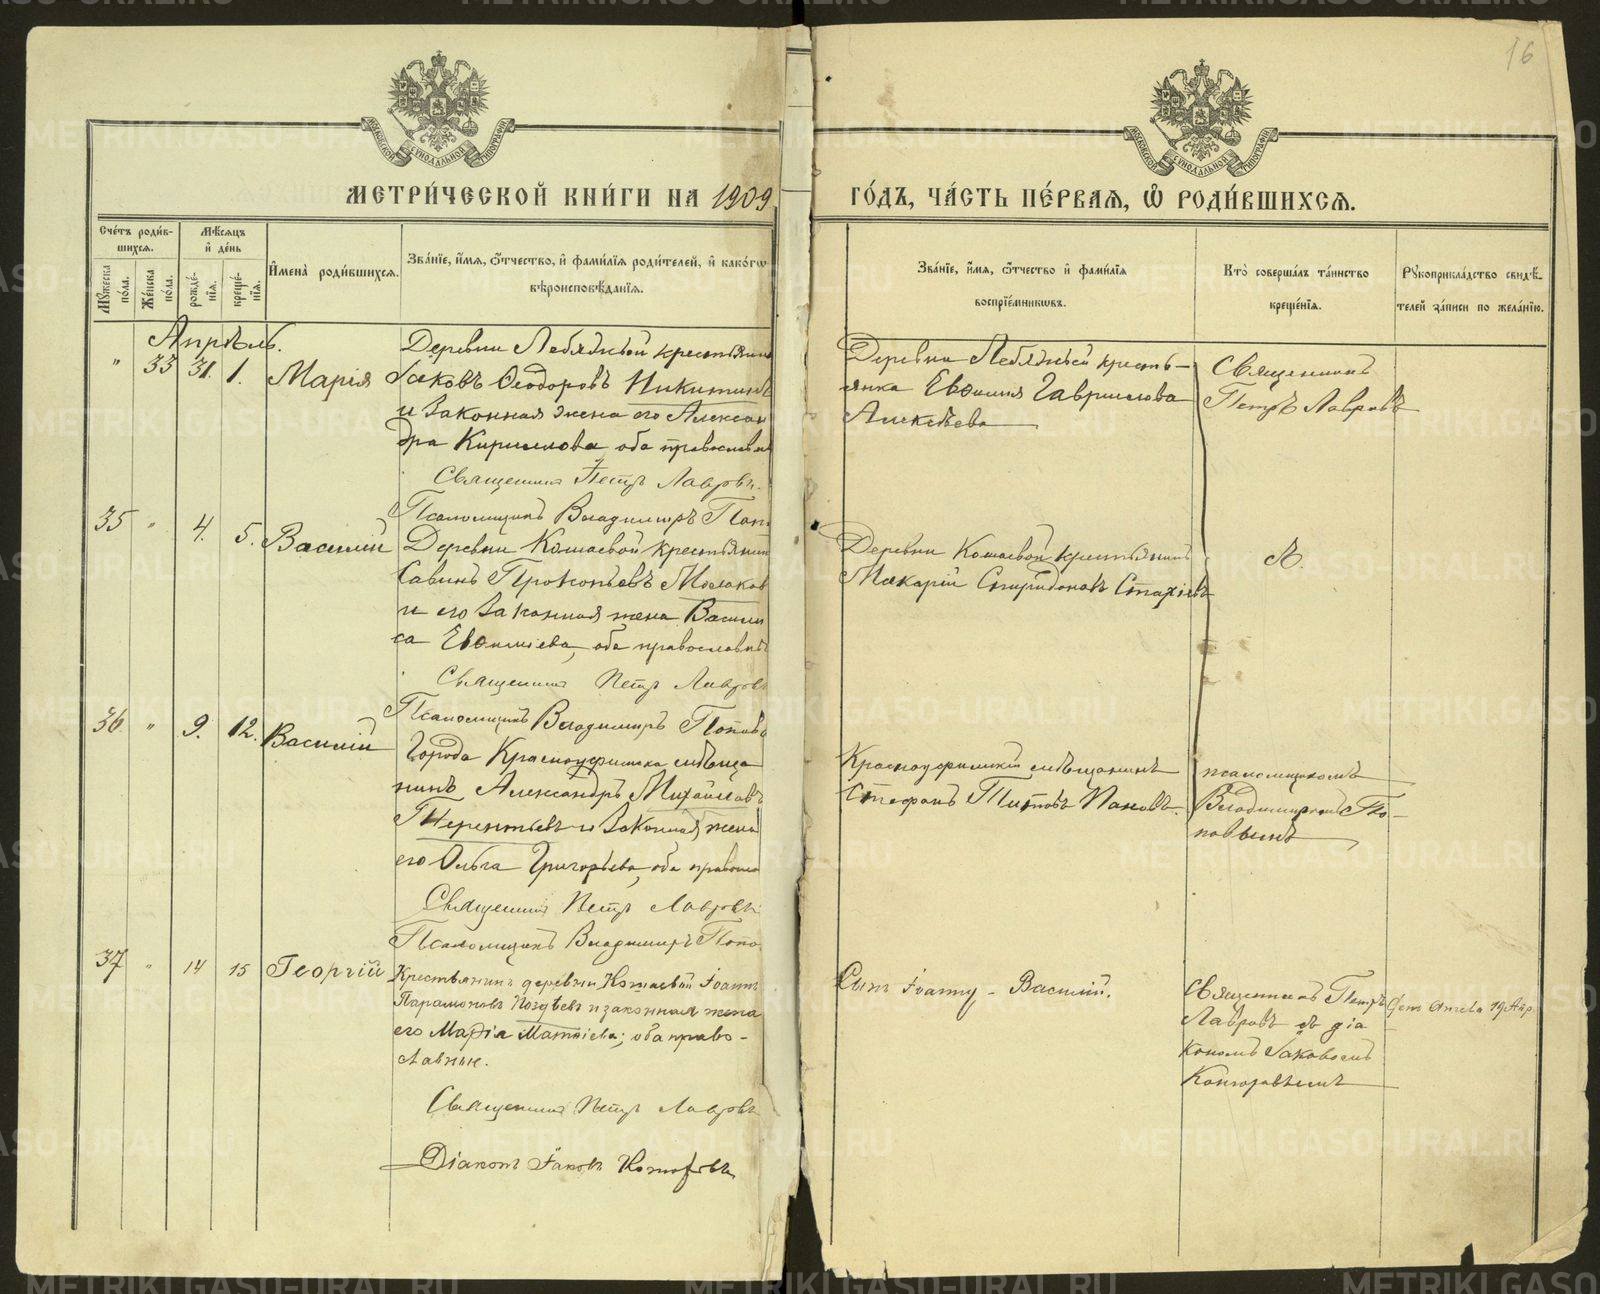 16
МОСКОВСКОЙ СУНОДАЛЬНОЙ ТИПОГРАФІИ
МОСКОВСКОЙ СУНОДАЛЬНОЙ ТИПОГРАФІИ
МЕТРИ́ЧЕСКОЙ КНИ́ГИ НА 1909
ГО́ДЪ, ЧА́СТЬ ПЕ́РВАѦ, Ѡ҆ РОДИ́ВШИХСѦ.
Сче́тъ роди́в-
шихсѧ.
Мꙋжеска по́ла.
Же́нска по́ла.
Мѣ́сѧцъ
и҆ де́нь
рожде́-
нїѧ.
креще́-
нїѧ.
И҆мена̀ роди́вшихсѧ.
Зва́нїе, и҆́мѧ, ѻ҆́тчество, и҆ фами́лїѧ роди́телей, и҆ како́гѡ
вѣроисповѣ́данїѧ.
Зва́нїе, и҆́мѧ, ѻ҆́тчество и҆ фами́лїѧ
воспрїе́мникѡвъ.
Кто̀ соверша́лъ та́инство
креще́нїѧ.
Рꙋкоприкла́дство свидѣ́-
телей за́писи по жела́нїю.
Апрѣль.
" 33 31. 1. Марія
Деревни Лебяжьей крестьянинъ
Іаковъ Ѳеодоровъ Никитинъ
и законная жена его Алексан
дра Кириллова, оба православн
Священникъ Петръ Лавровъ.
Псаломщикъ Владимиръ Поп
Деревни Лебяжьей кресть-
янка Евѳимія Гаврилова
Алексѣева
Священникъ
Петръ Лавровъ
35 " 4. 5. Василій
Деревни Кошаевой крестьянин
Савинъ Прокопьевъ
и его законная жена Васили
са Евѳиміева, оба православн
Священникъ Петръ Лавровъ
Псаломщикъ Владимиръ Поповъ
Деревни Кошаевой крестьянинъ
Макарій Спиридоновъ Стахіевъ
36 " 9. 12. Василій
Города Красноуфимска мѣща
нинъ Александръ Михайловъ
Терентьевъ и законная жена
его Ольга Григорьева, оба правосл
Священникъ Петръ Лавровъ
Псаломщикъ Владимиръ Попо
Красноуфимскій мѣщанинъ
Стефанъ Титовъ Пановъ.
псаломщикомъ
Владимиромъ По-
повымъ
37 " 14 15 Георгій
Крестьянинъ деревни Кошаевой Іоаннъ
Парамоновъ Поздѣевъ и законная жена
его Марія Матѳіева; оба право-
славные.
Священникъ Петръ Лавровъ
Діаконъ Іаковъ
Сынъ Іоанну - Василій.
Священникъ Петръ
Лавровъ съ діа
кономъ Іаковомъ
День Ангела 19 Апр.
METRIKI.GASO-URAL.RU